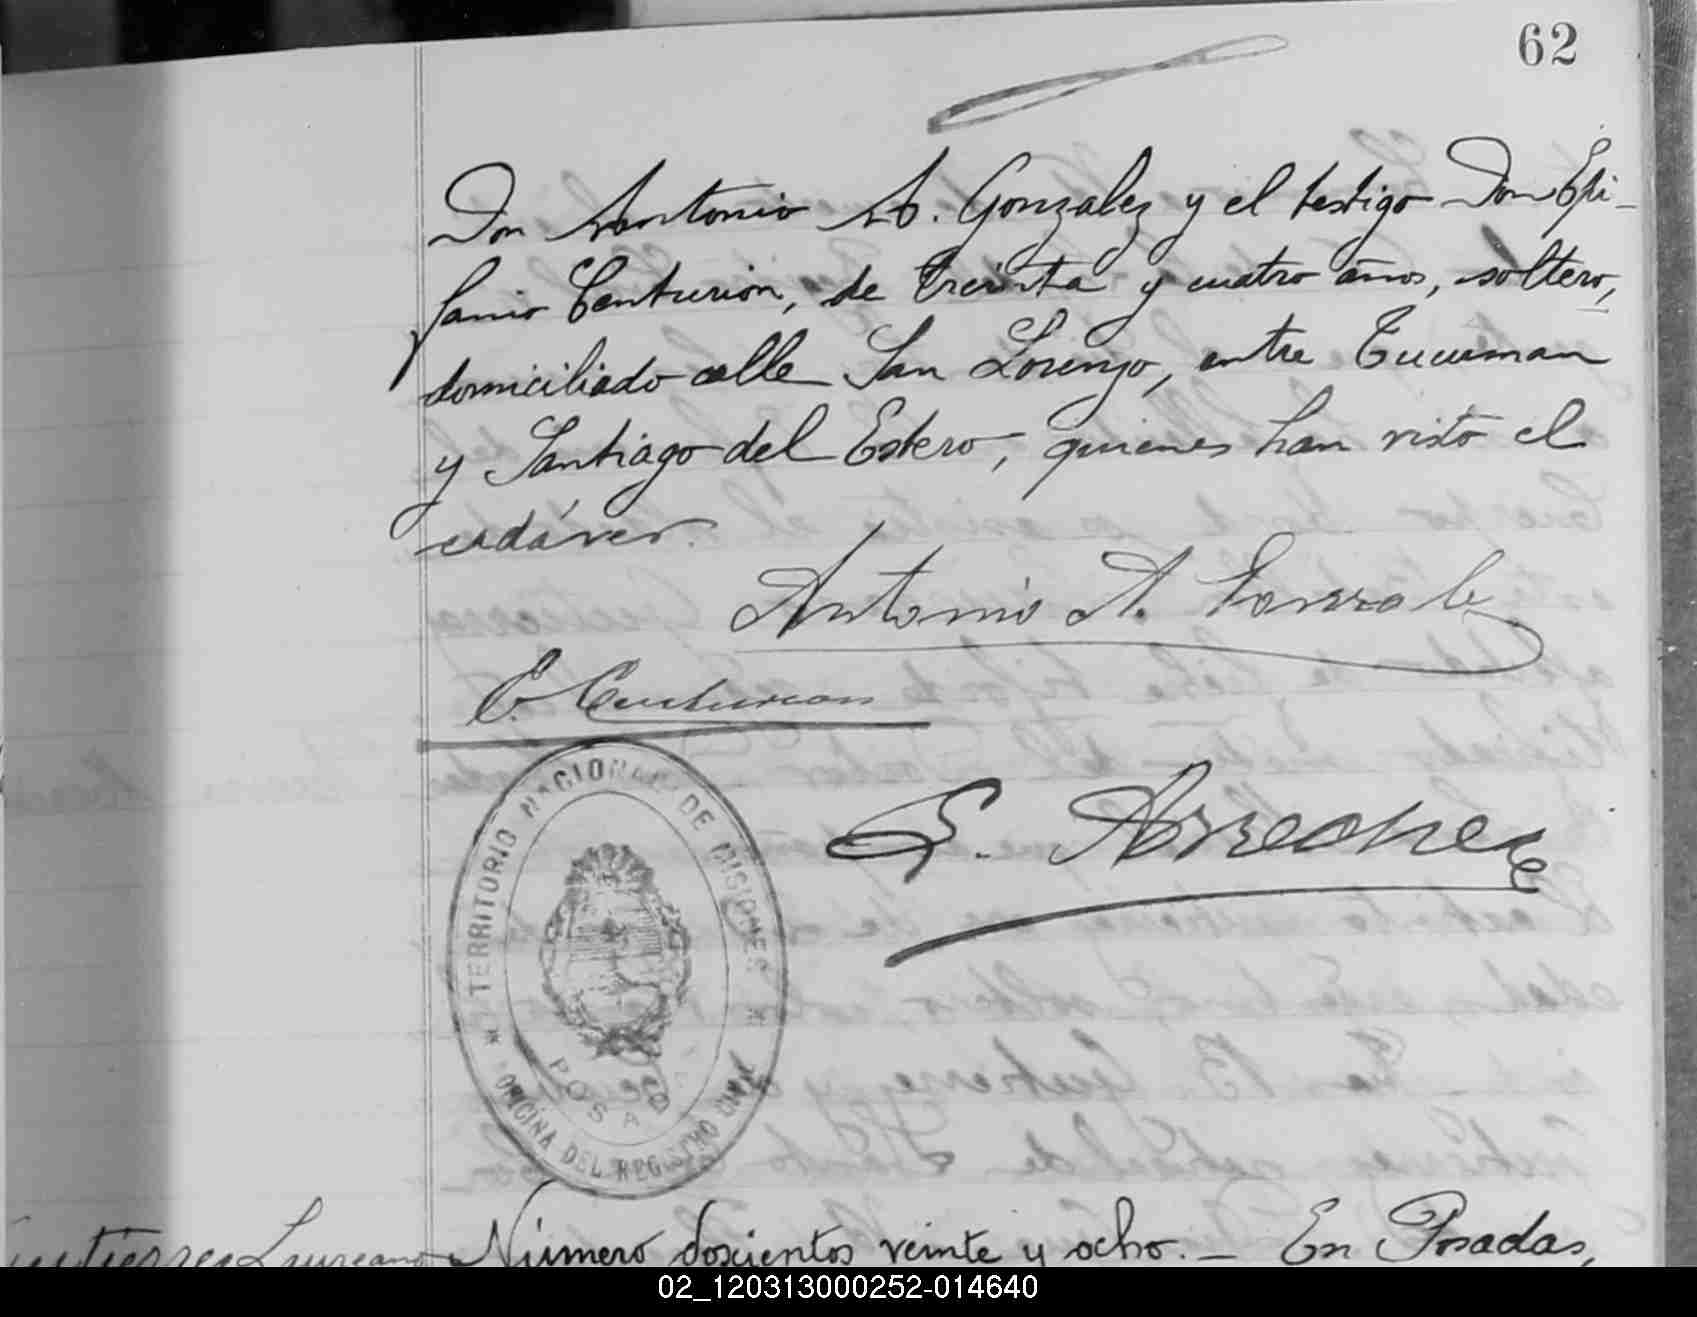 62
Don Antonio A. Gonzalez y el testigo Don Epi-
fanio Centurión, de treinta y cuatro años, soltero,
domiciliado calle San Lorenzo, entre Tucuman
y Santiago del Estero, quienes han visto el
cadáver.
Antonio A. Gonzalez
E. Centurion
TERRITORIO NACIONAL DE MISIONES
POSADAS
OFICINA DEL REGISTRO CIVIL
E. Arrechea
Gutierrez Laureano
Número doscientos veinte y ocho. - En Posadas,
02_120313000252-014640